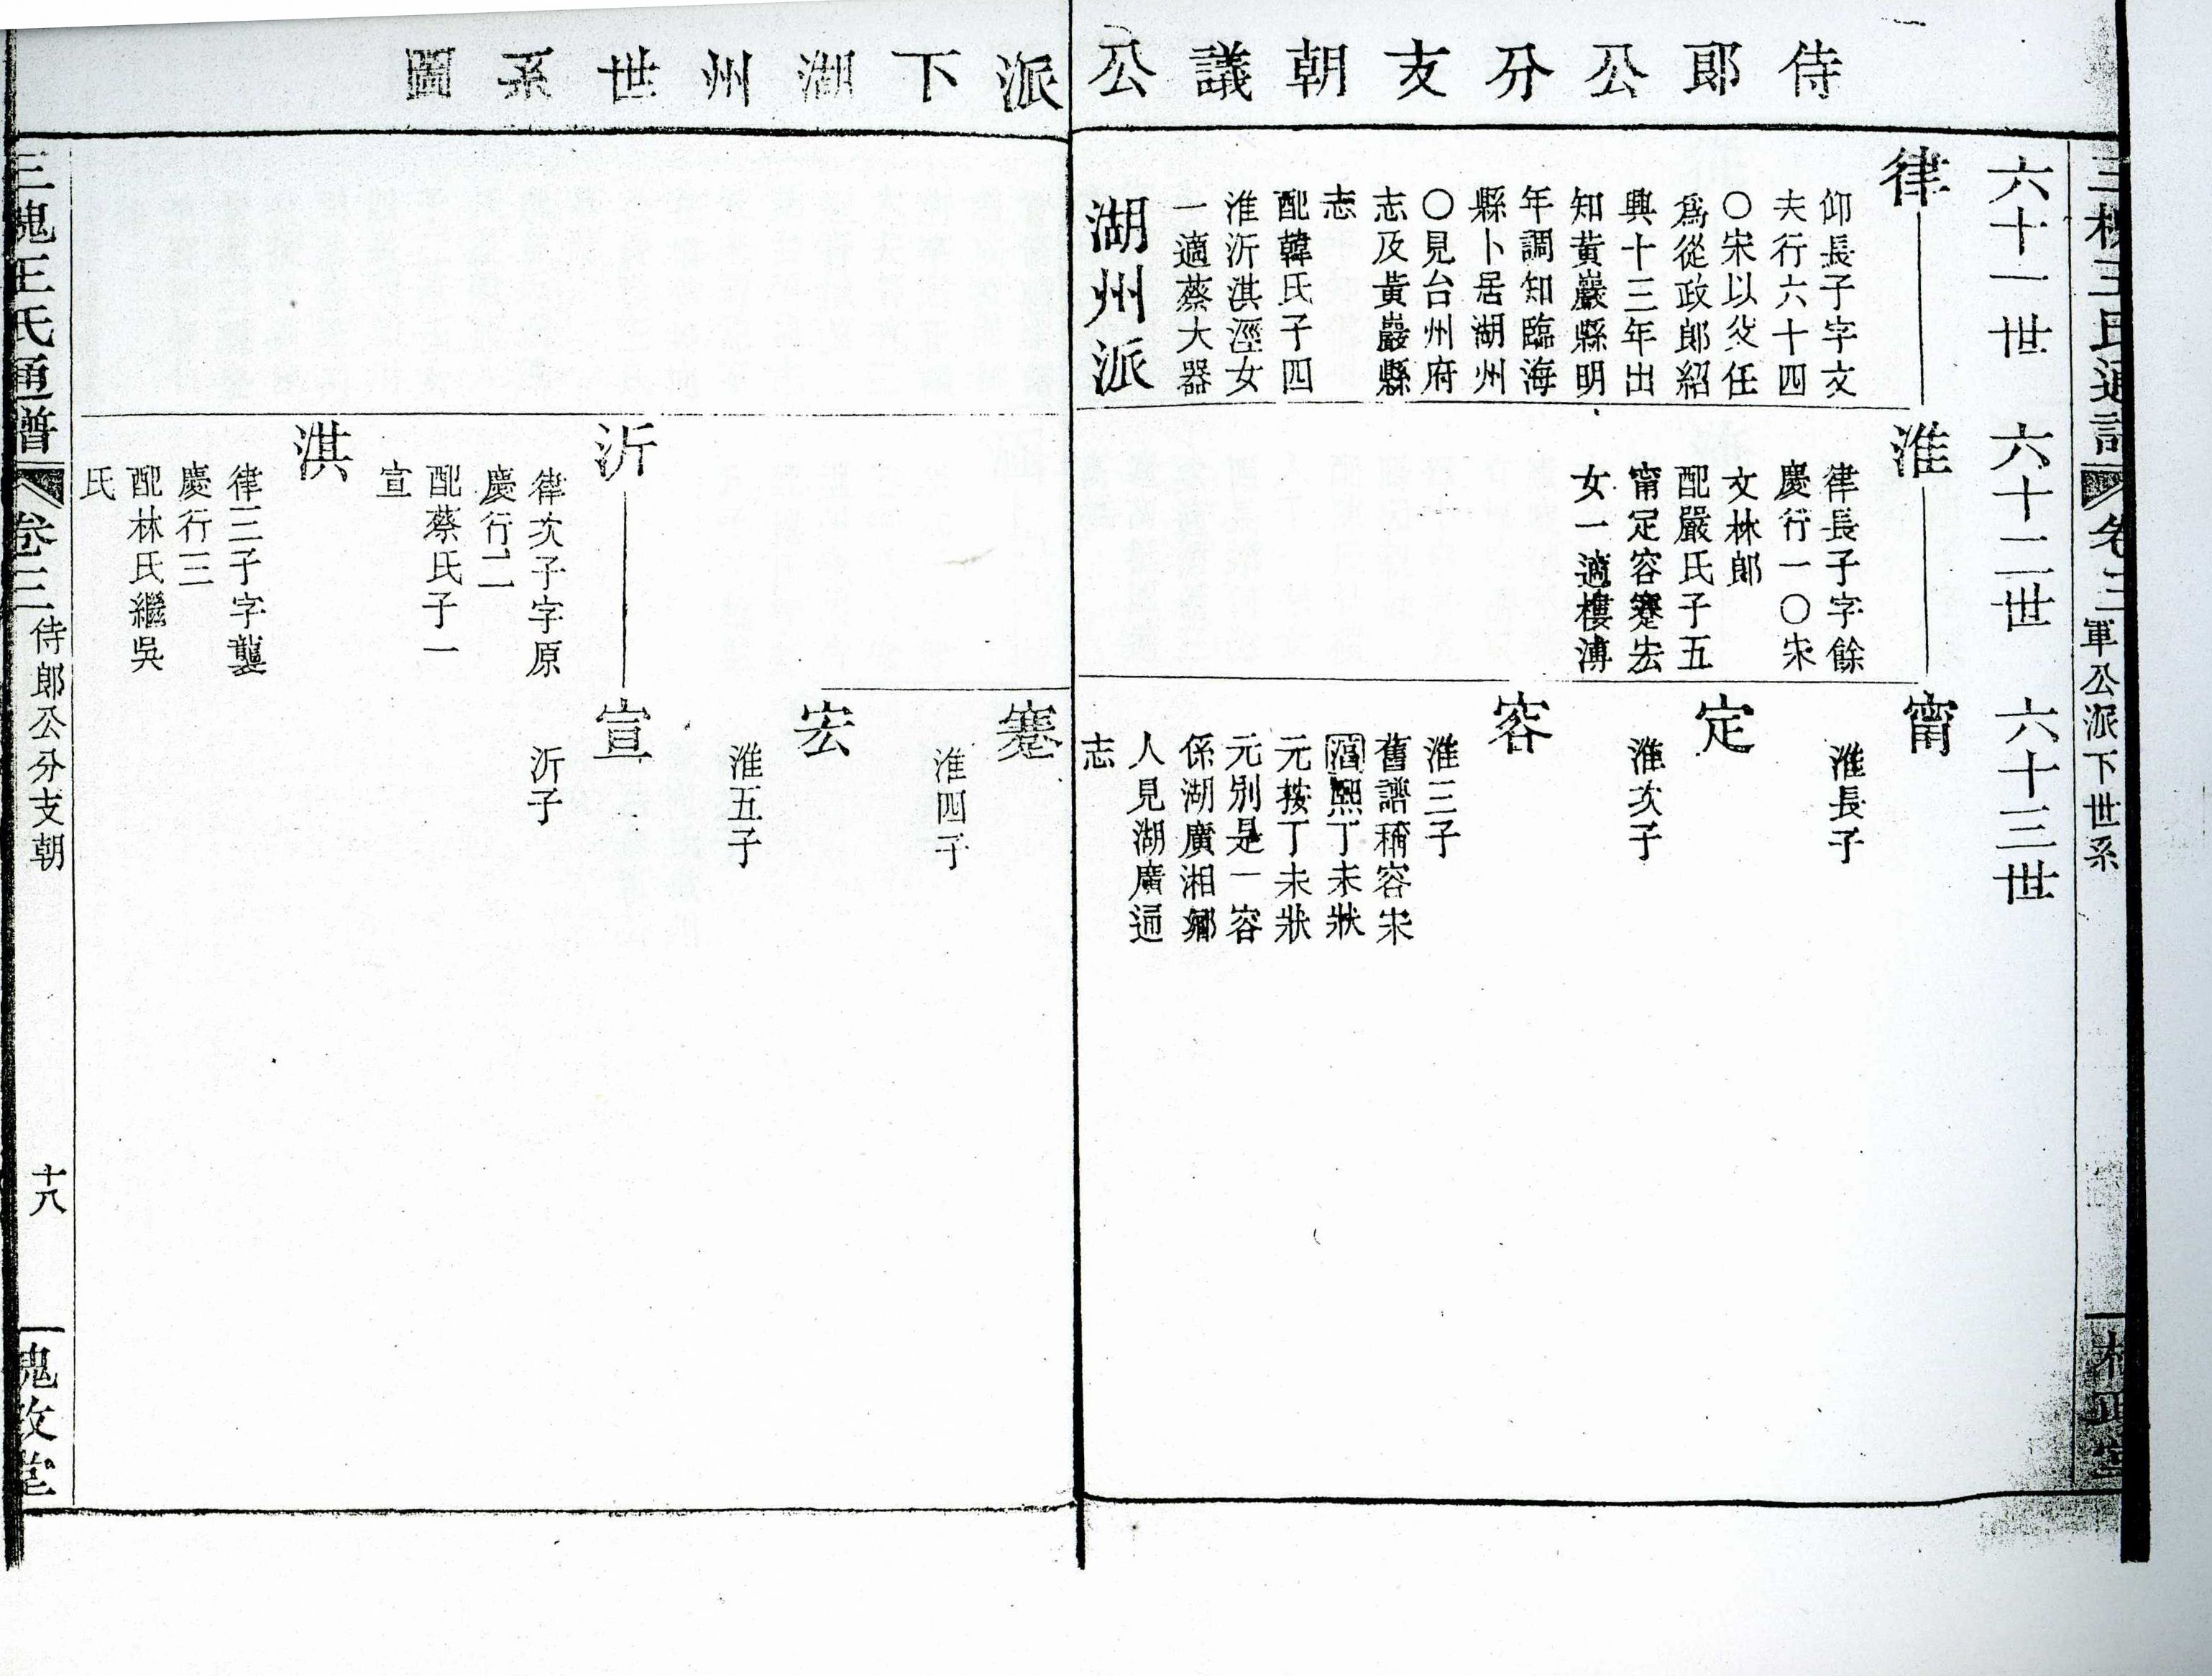 侍郎公分支朝議公派下湖州世系圖
六十一世
六十二世
六十三世
律
仰長子字文
夫行六十四
〇宋以父任
爲從政郎紹
興十三年出
知黃巖縣明
年調知臨海
縣卜居湖州
〇見台州府
志及黃巖縣
志
配韓氏子四
淮沂淇涇女
一適蔡大器
湖州派
淮
律長子字餘
慶行一〇宋
文林郎
配嚴氏子五
甯定容蹇宏
女一適樓溥
甯
淮長子
定
淮次子
容
淮三子
舊譜稱容宋
熙丁未狀
元按丁未狀
元別是一容
係湖廣湘鄉
人見湖廣通
志
蹇
淮四子
宏
淮五子
沂
律次子字原
慶行二
配蔡氏子一
宣
宣
沂子
淇
律三子字龔
慶行三
配林氏繼吳
氏
三槐王氏通譜
卷三
軍公派下世系
三槐王氏通譜
卷三
侍郎公分支朝
十八
槐政堂